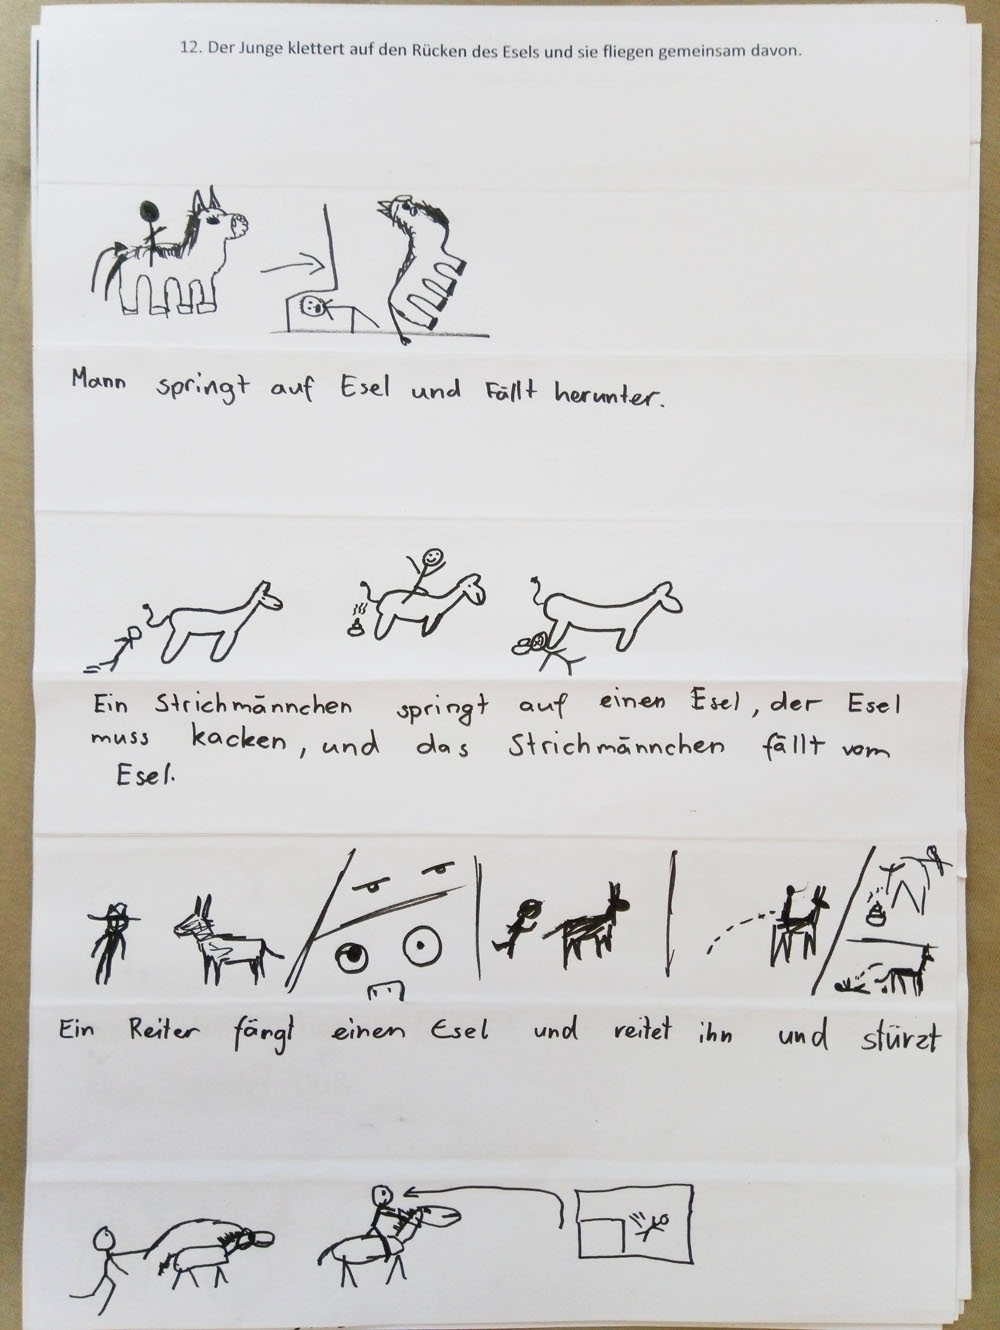 12. Der Junge klettert auf den Rücken des Esels und sie fliegen gemeinsam davon.
Mann springt auf Esel und Fällt herunter.
Ein Strichmännchen springt auf einen Esel, der Esel
muss kacken, und das Strichmännchen fällt vom
Esel.
Ein Reiter fängt einen Esel und reitet ihn und stürzt